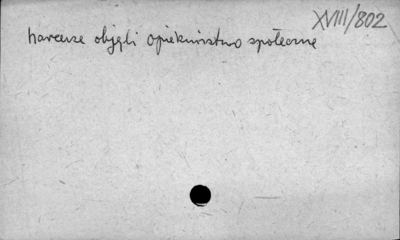 XVIII/802
harcerze objęli opiekuństwo społeczne